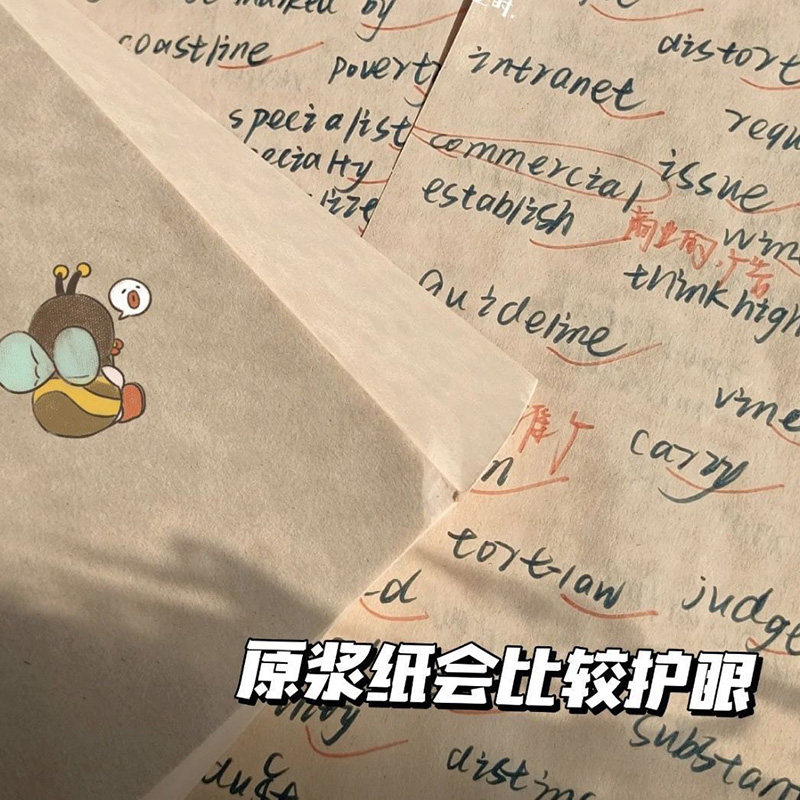 marked by
coastline
poverty
specialist
intranet
distort
commercial
issue
establish
商业的,广告
think high
Guideline
vine
carry
n
tort-law
judge
-d
原浆纸会比较护眼
substan
distin